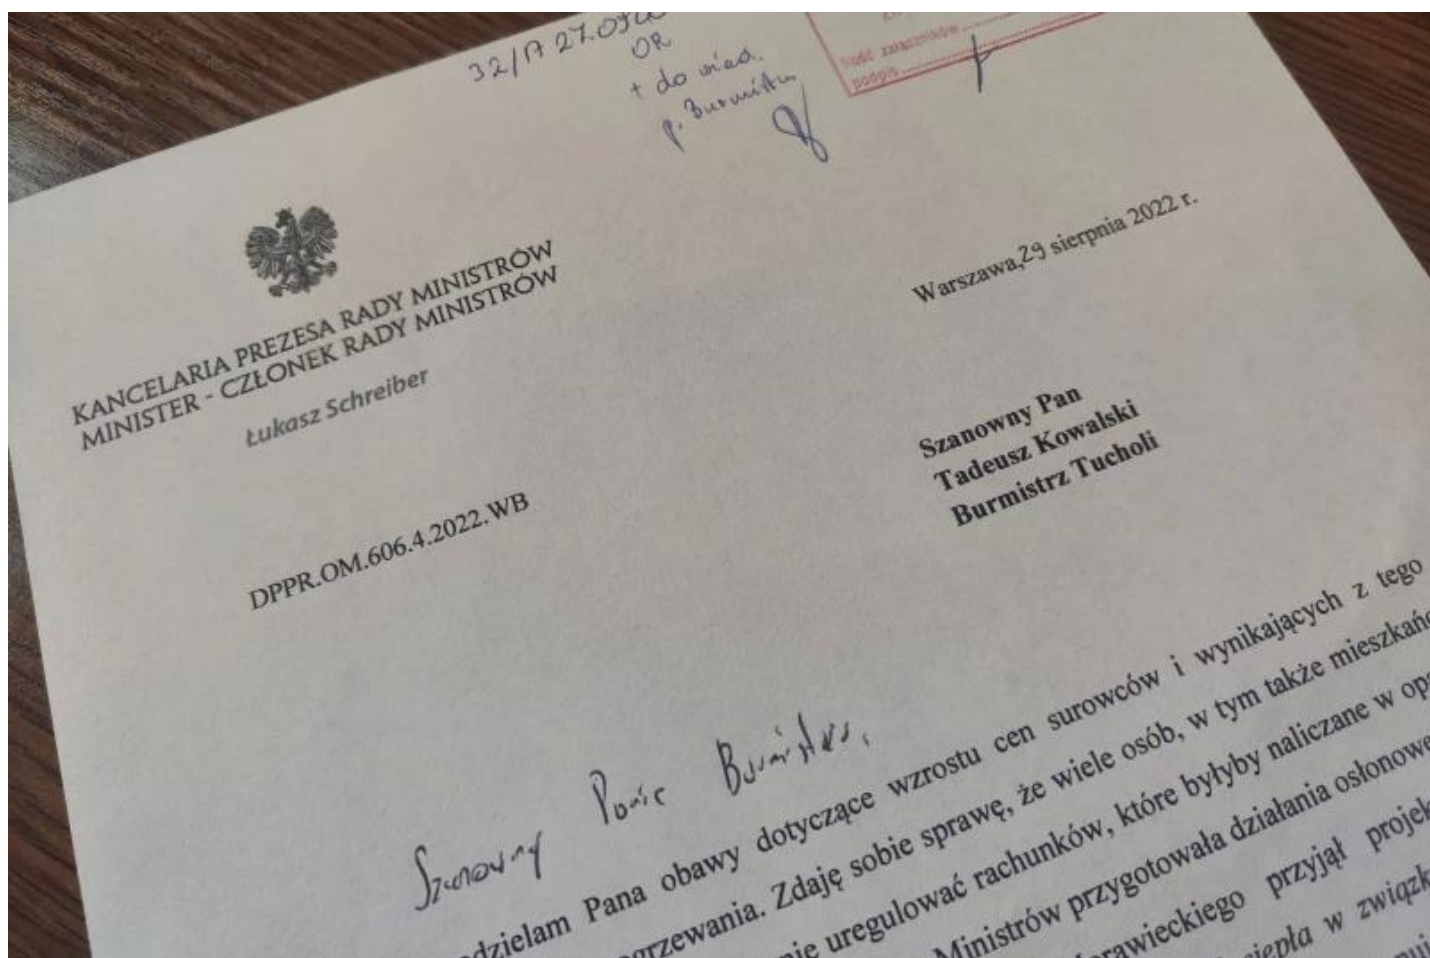 32/A 27.09
OR
+ do wiad.
p. Burmistrz
ilość załączników
podpis
KANCELARIA PREZESA RADY MINISTRÓW
MINISTER - CZŁONEK RADY MINISTRÓW
Łukasz Schreiber
Warszawa, 29 sierpnia 2022 r.
Szanowny Pan
Tadeusz Kowalski
Burmistrz Tucholi
DPPR.OM.606.4.2022.WB
Szanowny Panie Burmistrzu,
odzielam Pana obawy dotyczące wzrostu cen surowców i wynikających z tego
ogrzewania. Zdaję sobie sprawę, że wiele osób, w tym także mieszkańc
nie uregulować rachunków, które byłyby naliczane w op
Ministrów przygotowała działania osłonowe
orawieckiego przyjął projek
ciepła w związk